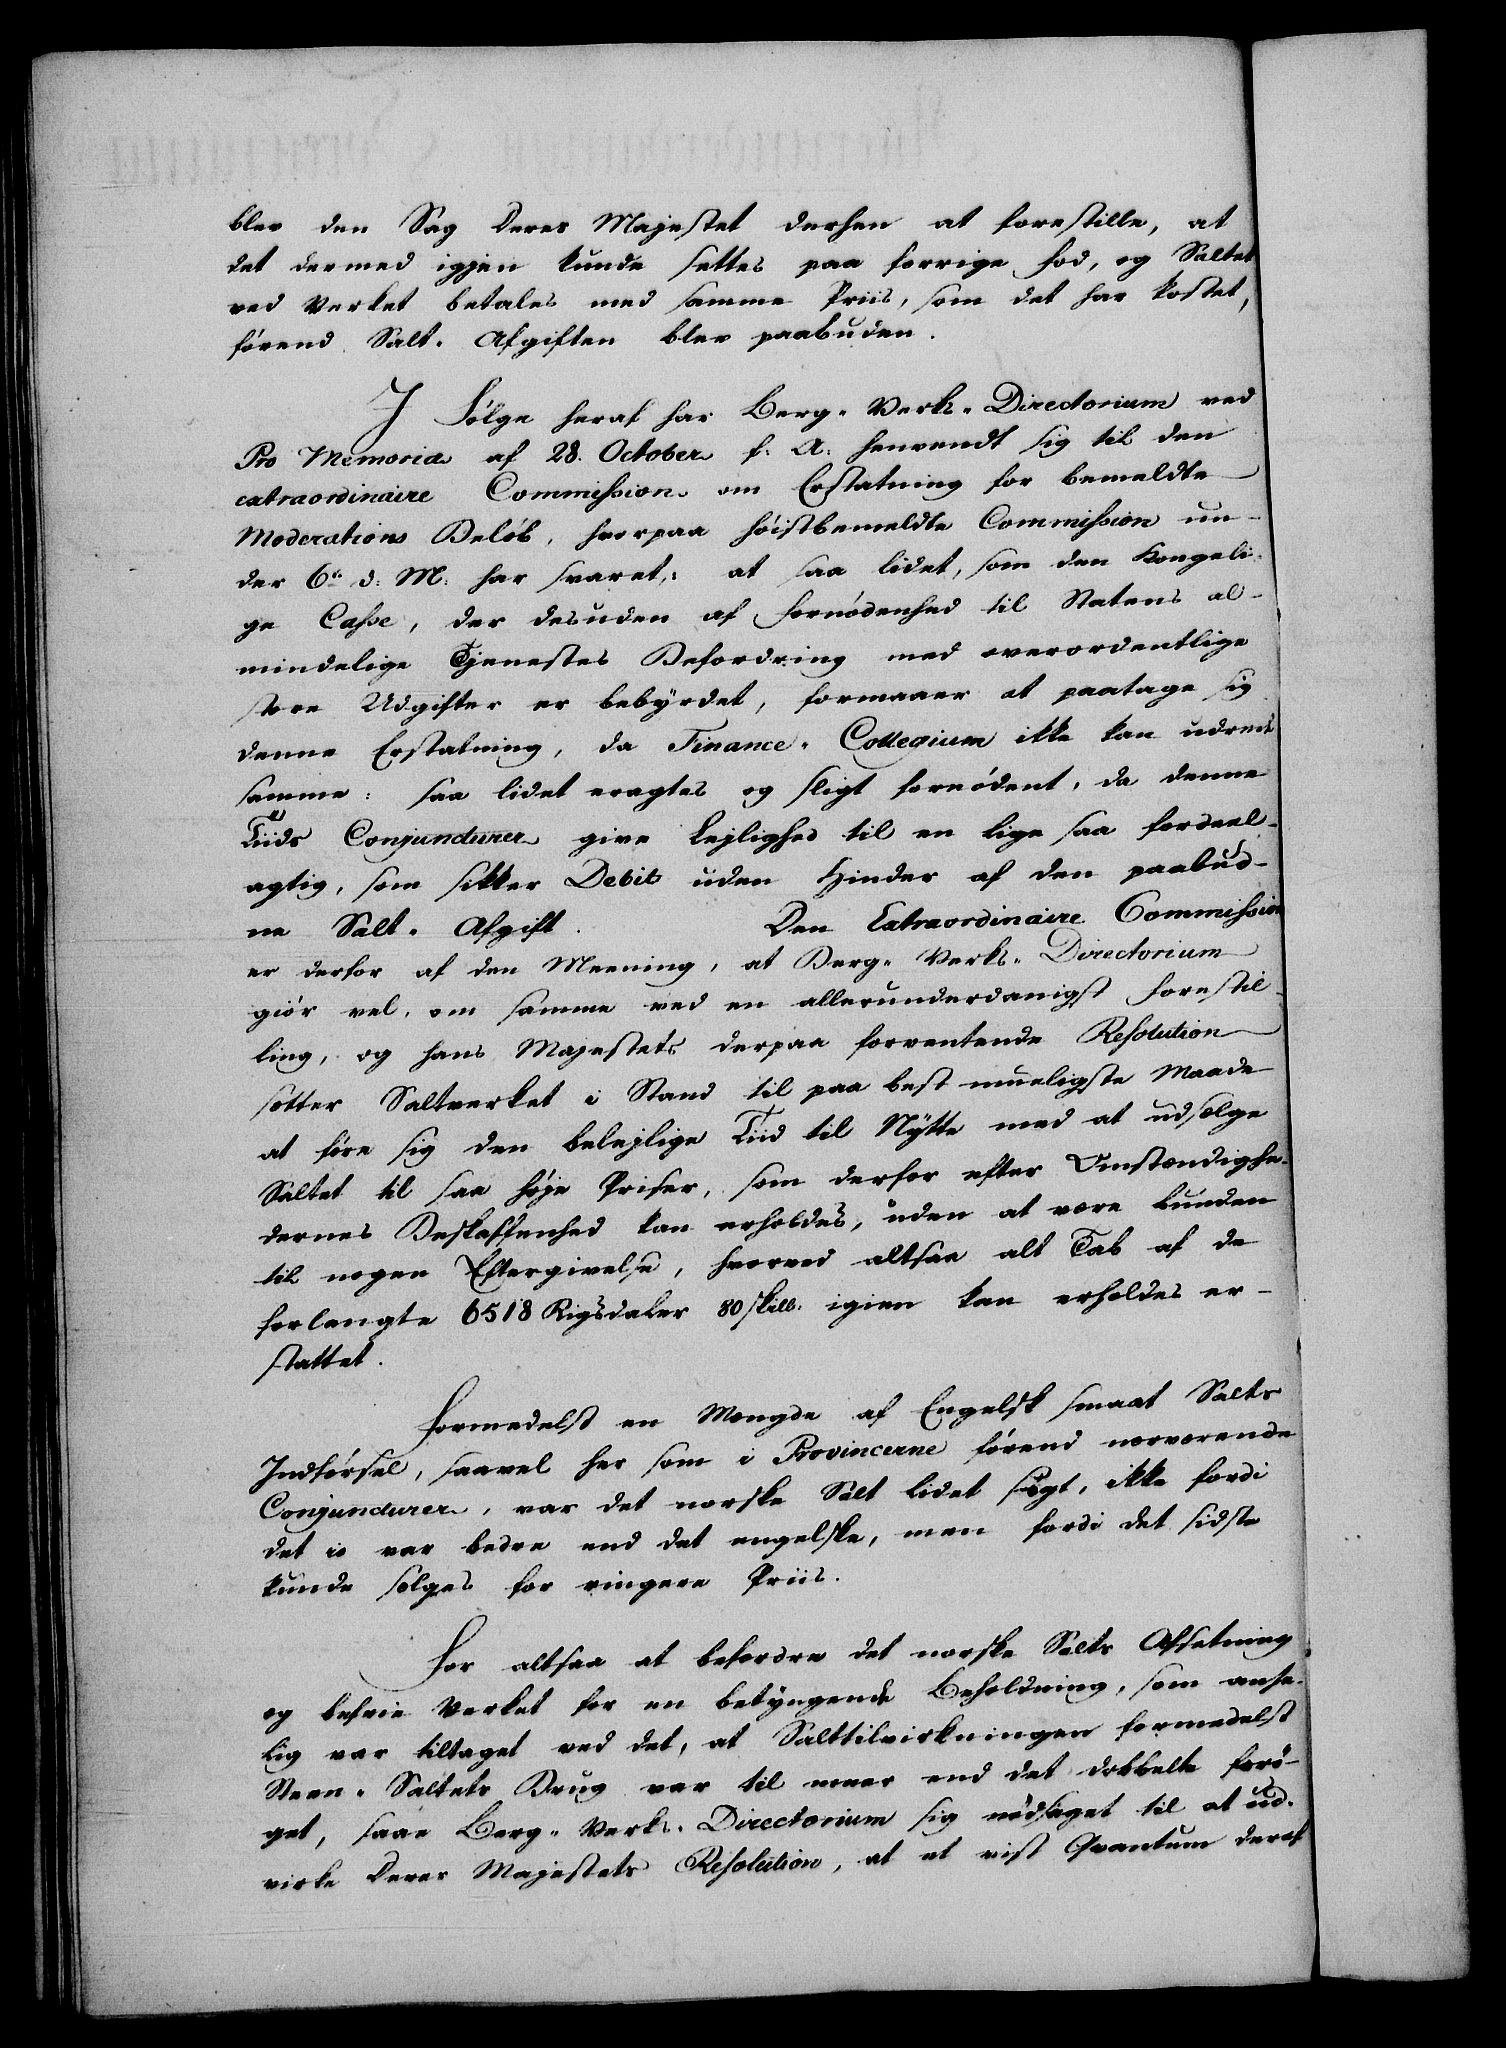 blev den Sag Deres Majestet derhen at forestille, at
det dermed igjen kunde settes paa forrige Fod, og Saltet
ved Verket betales med samme Priis, som det har kostet,
førend Salt-Afgiften blev paabuden.
I Følge heraf har Berg-Verks-Directorium ved
Pro Memoria af 28. October f. A. henvendt sig til den
extraordinaire Commission om Erstatning for bemeldte
Moderations Beløb, hvorpaa høistbemeldte Commission un-
der 6te d: M: har svaret: at saa lidet, som den Kongeli-
ge Casse, der desuden af Fornødenhed til Statens al-
mindelige Tjenestes Befordring med overordentlige
store Udgifter er bebyrdet, formaaer at paatage sig
denne Erstatning, da Finance-Collegium ikke kan udrede
samme: saa lidet eragtes og sligt fornødent, da denne
Tiids Conjuncturer give Lejlighed til en lige saa fordeel-
agtig, som sikker Debit uden Hinder af den paabud-
ne Salt-Afgift. Den Extraordinaire Commission
er derfor af den Meening, at Berg-Verks-Directorium
giør vel, om samme ved en allerunderdanigst Forestil-
ling, og Hans Majestets derpaa forventende Resolution
sætter Saltverket i Stand til paa best mueligste Maade
at føre sig den belejlige Tiid til Nytte med at udsælge
Saltet til saa høje Priser, som derfor efter Omstændighe-
dernes Beskaffenhed kan erholdes, uden at være bunden
til nogen Eftergivelse, hvorved altsaa alt Tab af de
forlangte 6518 Rigsdaler 80 skill. igien kan erholdes er-
stattet.
Formedelst en Mængde af Engelsk smaat Salts
Indførsel, saavel her som i Provincerne førend nærværende
Conjuncturer, var det norske Salt lidet søgt, ikke fordi
det jo var bedre end det engelske, men fordi det sidste
kunde sælges for ringere Priis.
For altsaa at befordre det norske Salts Afsetning
og befrie Verket for en betyngende Beholdning, som anse-
lig var tiltaget ved det, at Salttilvirkningen formedelst
Steen-Saltets Brug var til meer end det dobbelte forø-
get, saae Berg-Verks-Directorium sig nødsaget til at ud-
virke Deres Majestets Resolution, at et vist Qvantum deraf